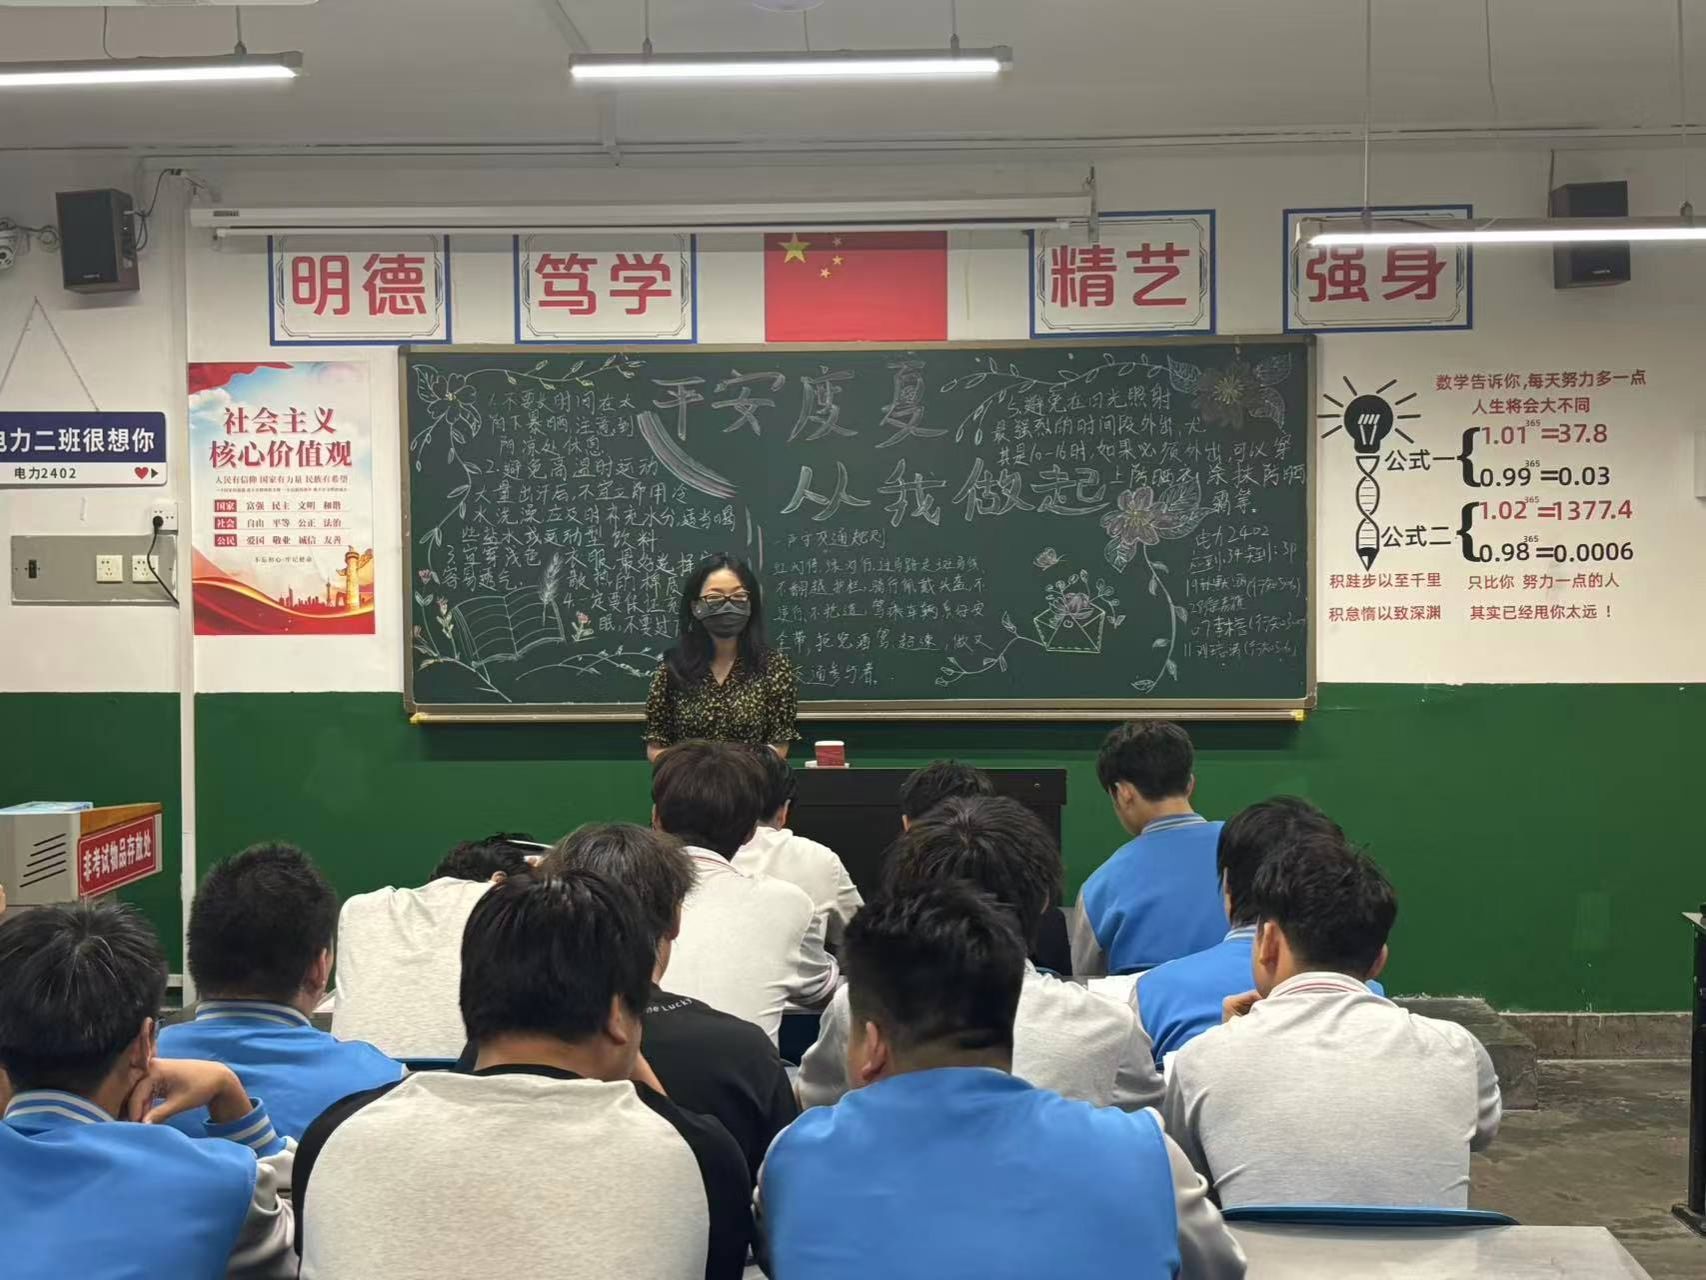 明德
笃学
精艺
强身
电力二班很想你
电力2402
社会主义
核心价值观
人民有信仰 国家有力量 民族有希望
国家 富强 民主 文明 和谐
社会 自由 平等 公正 法治
公民 爱国 敬业 诚信 友善
不忘初心·牢记使命
非考试物品存放处
平安度夏
从我做起
1.不要长时间在太
阳下暴晒,注意到
阴凉处休息
2.避免高温时运动
大量出汗后,不宜立即用冷
水洗澡应及时补充水分,适当喝
些盐水或运动型饮料
3.宜穿浅色 衣服,最好选择
容易透气 散热的棉质
4.一定要保证充
眠,不要过
严守交通规则
红灯停,绿灯行,过马路走斑马线
不翻越护栏,骑行佩戴头盔,不
逆行,不抢道,驾乘车辆系好安
全带,拒绝酒驾、超速,做文
交通参与者。
5.避免在日光照射
最强烈的时间段外出,尤
其是10-16时,如果必须外出,可以穿
上防晒衣,涂抹防晒
霜等。
电力2402
数学告诉你,每天努力多一点
人生将会大不同
公式一
1.01³⁶⁵=37.8
0.99³⁶⁵=0.03
公式二
1.02³⁶⁵=1377.4
0.98³⁶⁵=0.0006
积跬步以至千里 只比你 努力一点的人
积怠惰以致深渊 其实已经甩你太远!